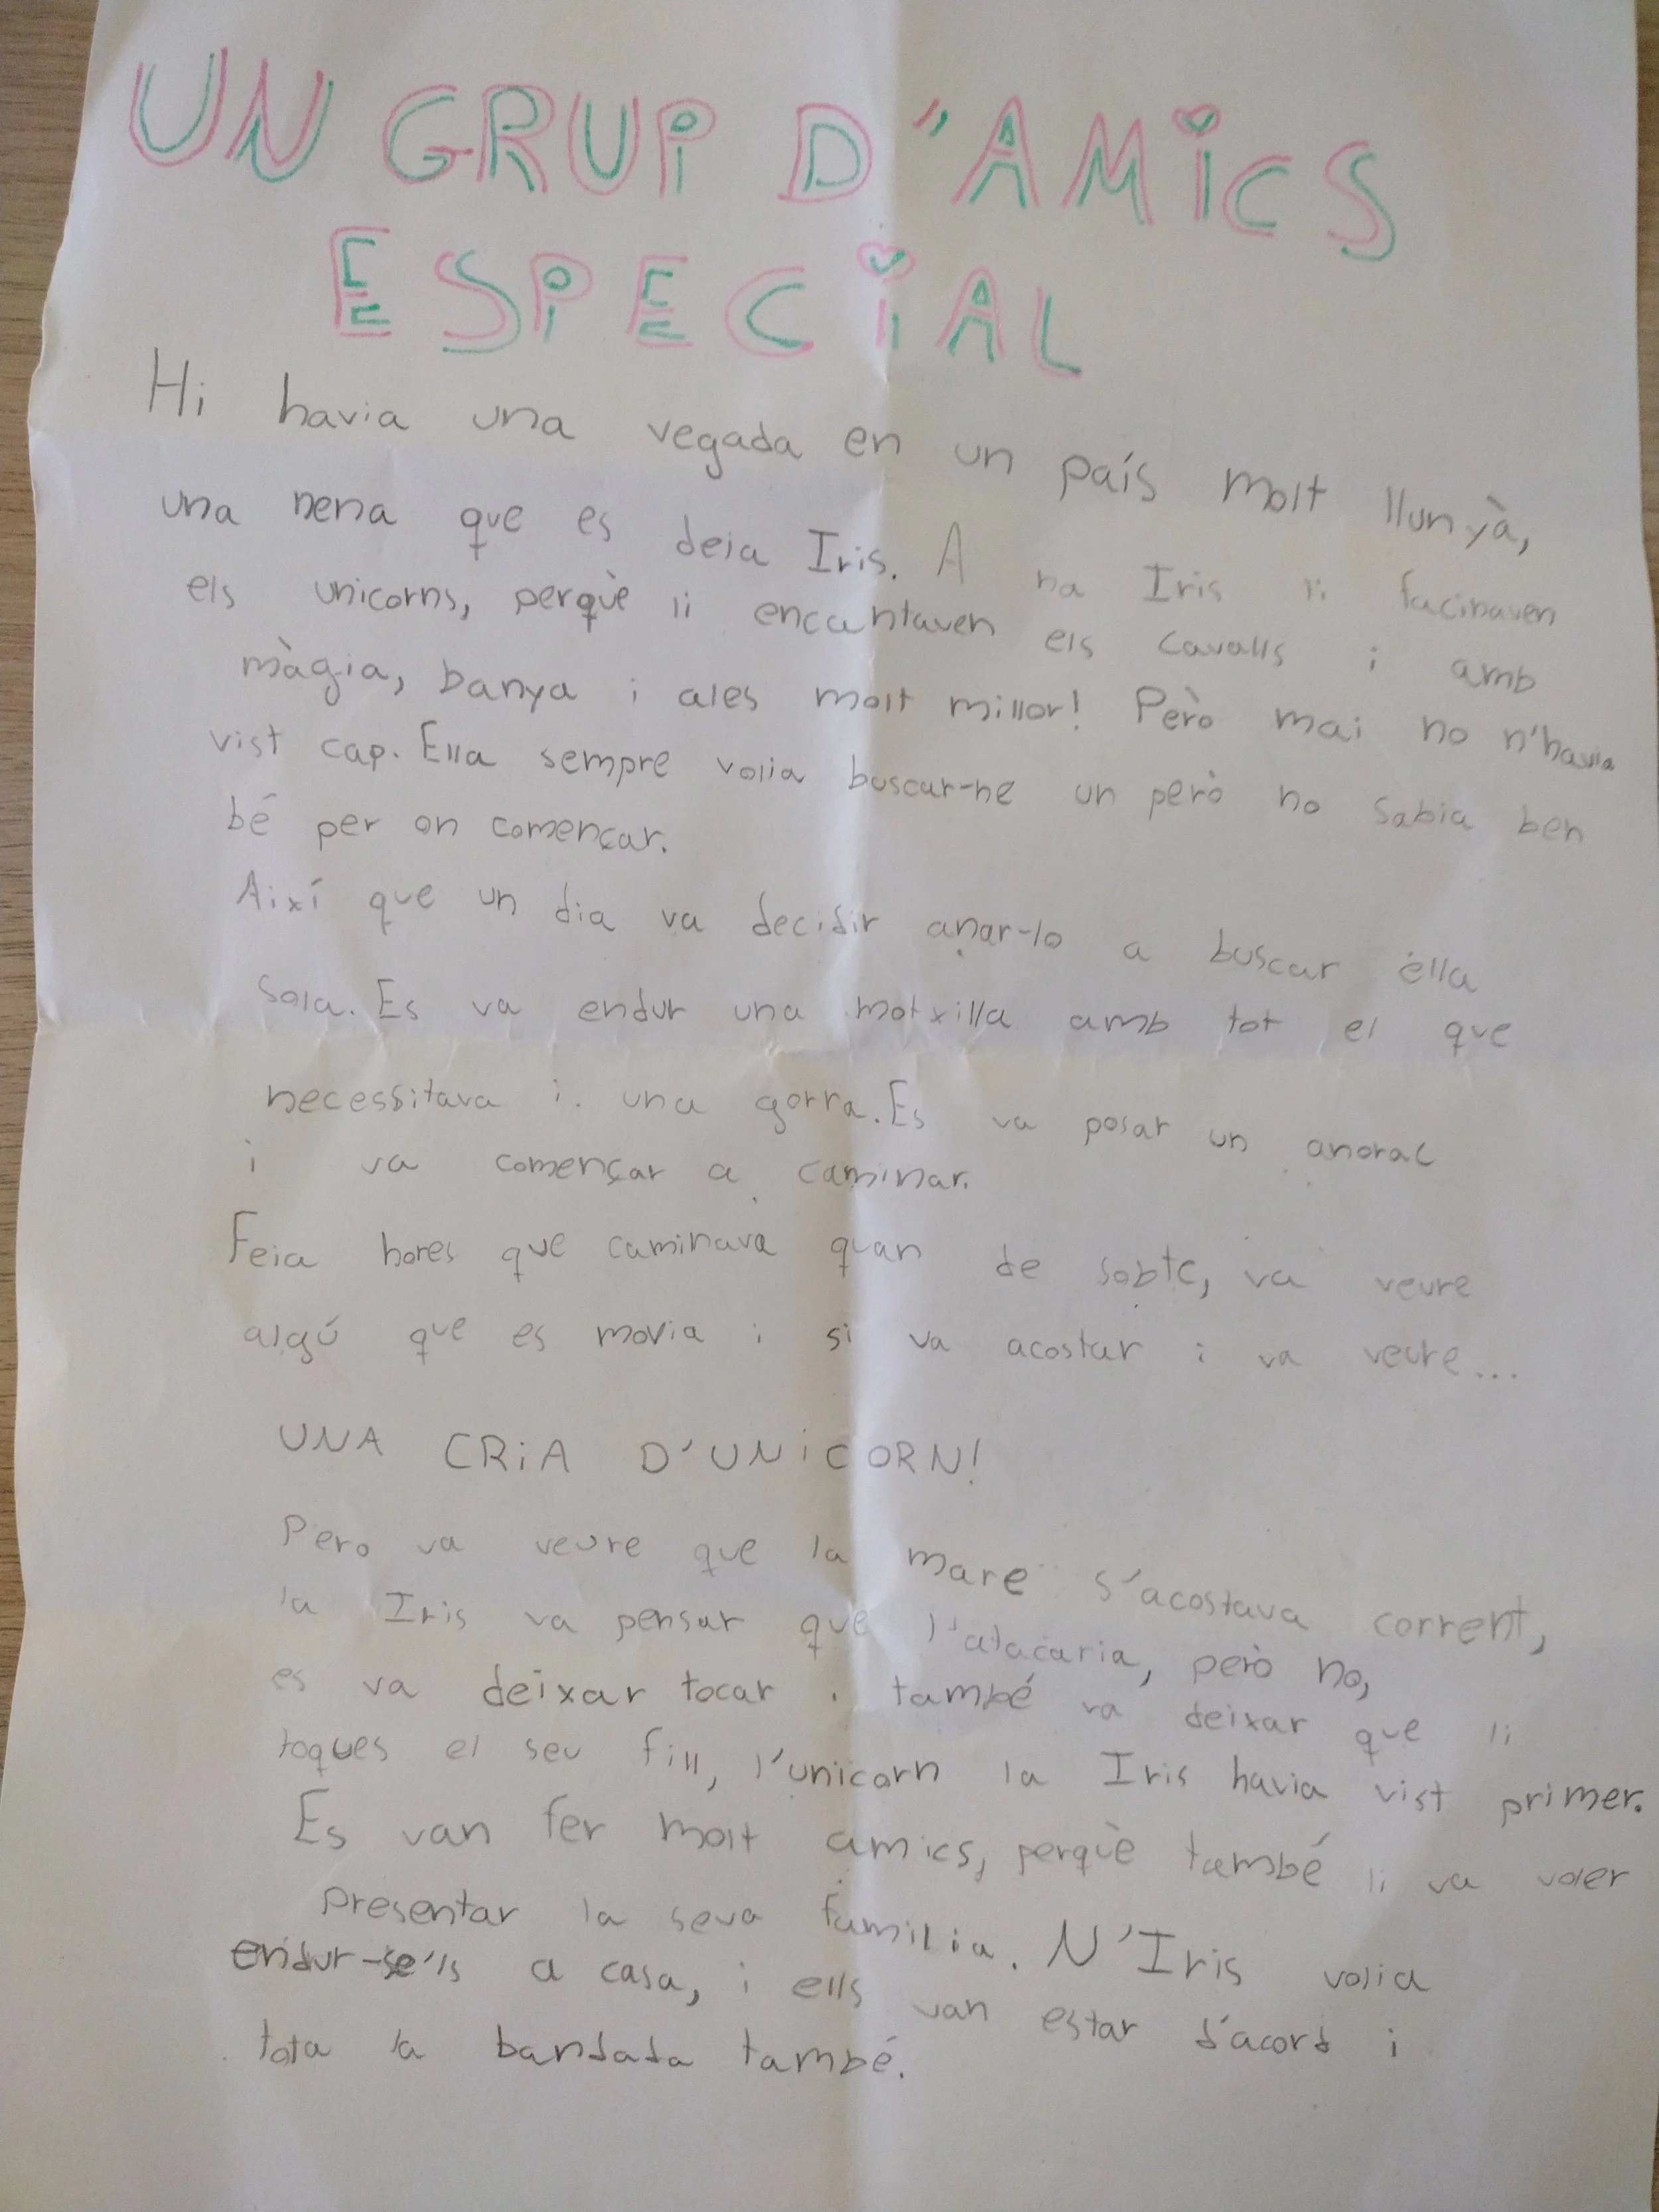 UN GRUP D'AMICS
ESPECIAL
Hi havia una vegada en un país molt llunyà,
una nena que es deia Iris. A na Iris li facinaven
els unicorns, perquè li encantaven els cavalls i amb
màgia, banya i ales molt millor! Però mai no n'havia
vist cap. Ella sempre volia buscar-ne un però no sabia ben
bé per on començar.
Així que un dia va decidir anar-lo a buscar ella
sola. Es va endur una motxilla amb tot el que
necessitava i una gorra. Es va posar un anorac
i va començar a caminar.
Feia hores que caminava quan de sobte, va veure
algú que es movia i si va acostar i va veure...
UNA CRIA D'UNICORN!
Pero va veure que la mare s'acostava corrent,
la Iris va pensar que l'atacaria, però no,
es va deixar tocar i també va deixar que li
toques el seu fill, l'unicorn la Iris havia vist primer.
Es van fer molt amics, perquè també li va voler
presentar la seva familia. N'Iris volia
endur-se'ls a casa, i ells van estar d'acord i
tota la bandada també.